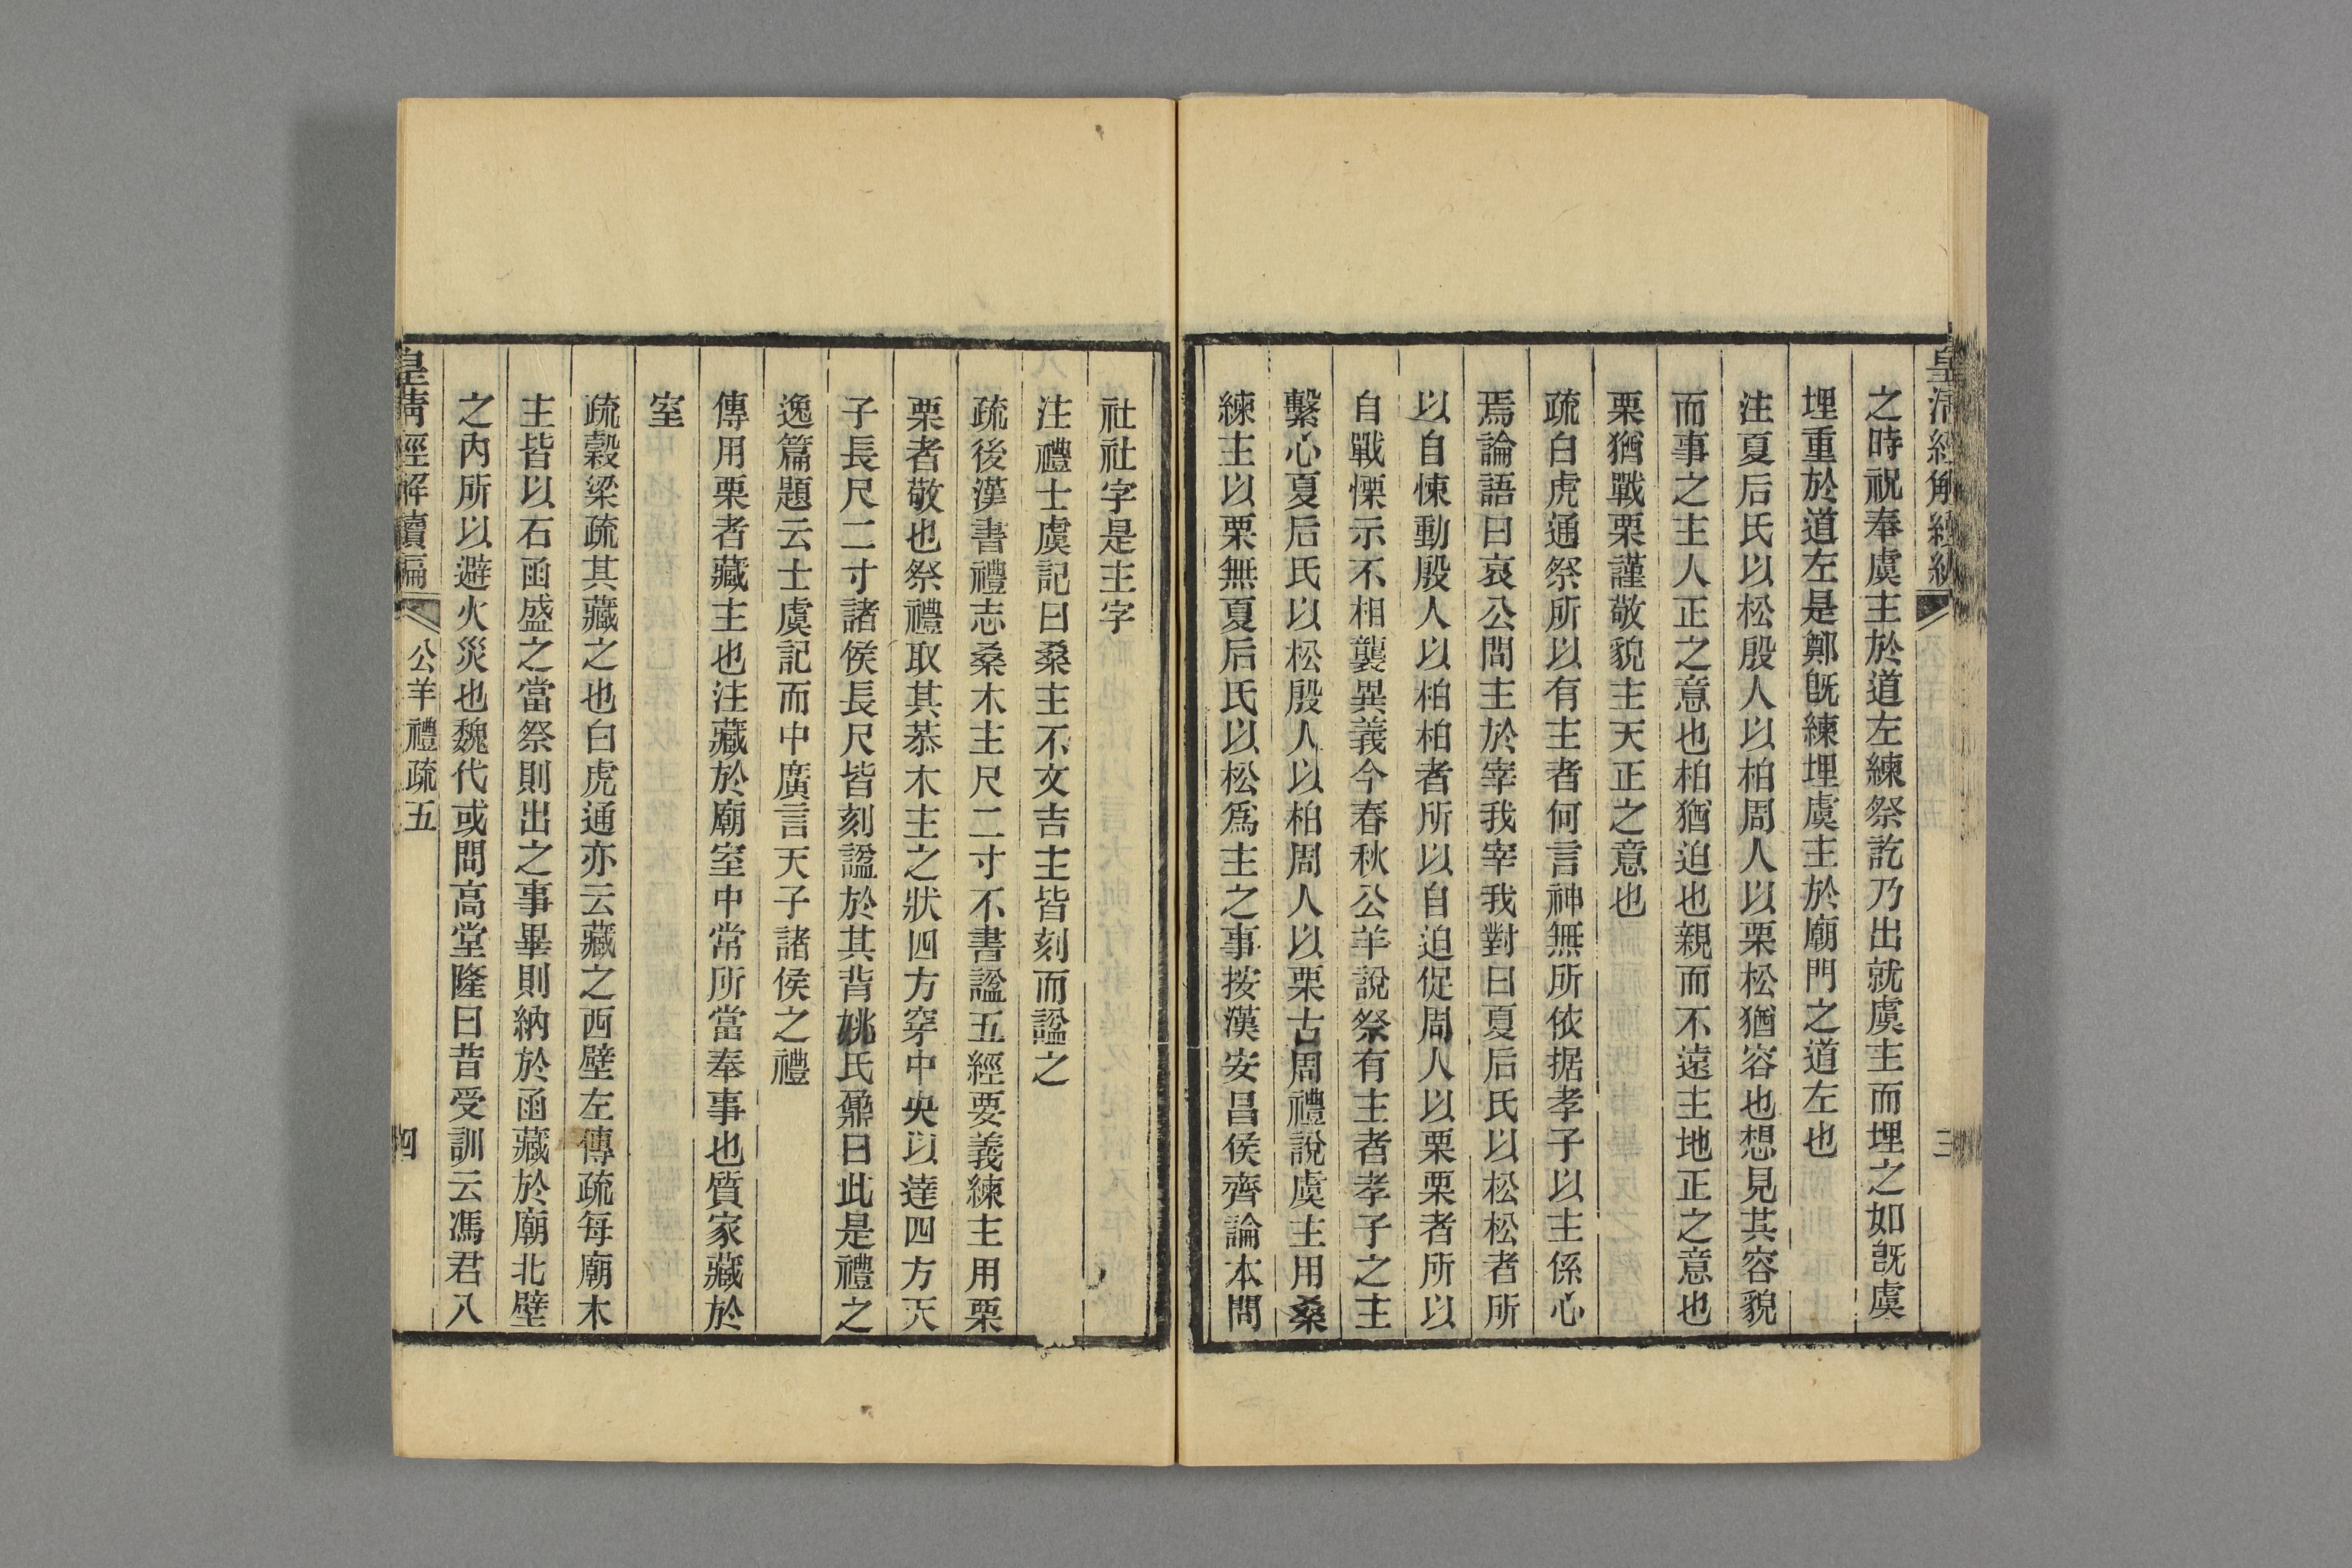 之時祝奉虞主於道左練祭訖乃出就虞主而埋之如旣虞
埋重於道左是鄭旣練埋虞主於廟門之道左也
注夏后氏以松殷人以柏周人以栗松猶容也想見其容貌
而事之主人正之意也柏猶迫也親而不遠主地正之意也
栗猶戰栗謹敬貌主天正之意也
疏白虎通祭所以有主者何言神無所依据孝子以主係心
焉論語曰哀公問主於宰我宰我對曰夏后氏以松松者所
以自悚動殷人以柏柏者所以自迫促周人以栗栗者所以
自戰慄示不相襲異義今春秋公羊說祭有主者孝子之主
繫心夏后氏以松殷人以柏周人以栗古周禮說虞主用桑
練主以栗無夏后氏以松爲主之事按漢安昌侯齊論本問
社社字是主字
注禮士虞記曰桑主不文吉主皆刻而諡之
疏後漢書禮志桑木主尺二寸不書諡五經要義練主用栗
栗者敬也祭禮取其恭木主之狀四方穿中央以達四方天
子長尺二寸諸侯長尺皆刻諡於其背姚氏鼐曰此是禮之
逸篇題云士虞記而中廣言天子諸侯之禮
傳用栗者藏主也注藏於廟室中常所當奉事也質家藏於
室
疏穀梁疏其藏之也白虎通亦云藏之西壁左傳疏每廟木
主皆以石函盛之當祭則出之事畢則納於函藏於廟北壁
之內所以避火災也魏代或問高堂隆曰昔受訓云馮君八
皇清經解續編 公羊禮疏五 四